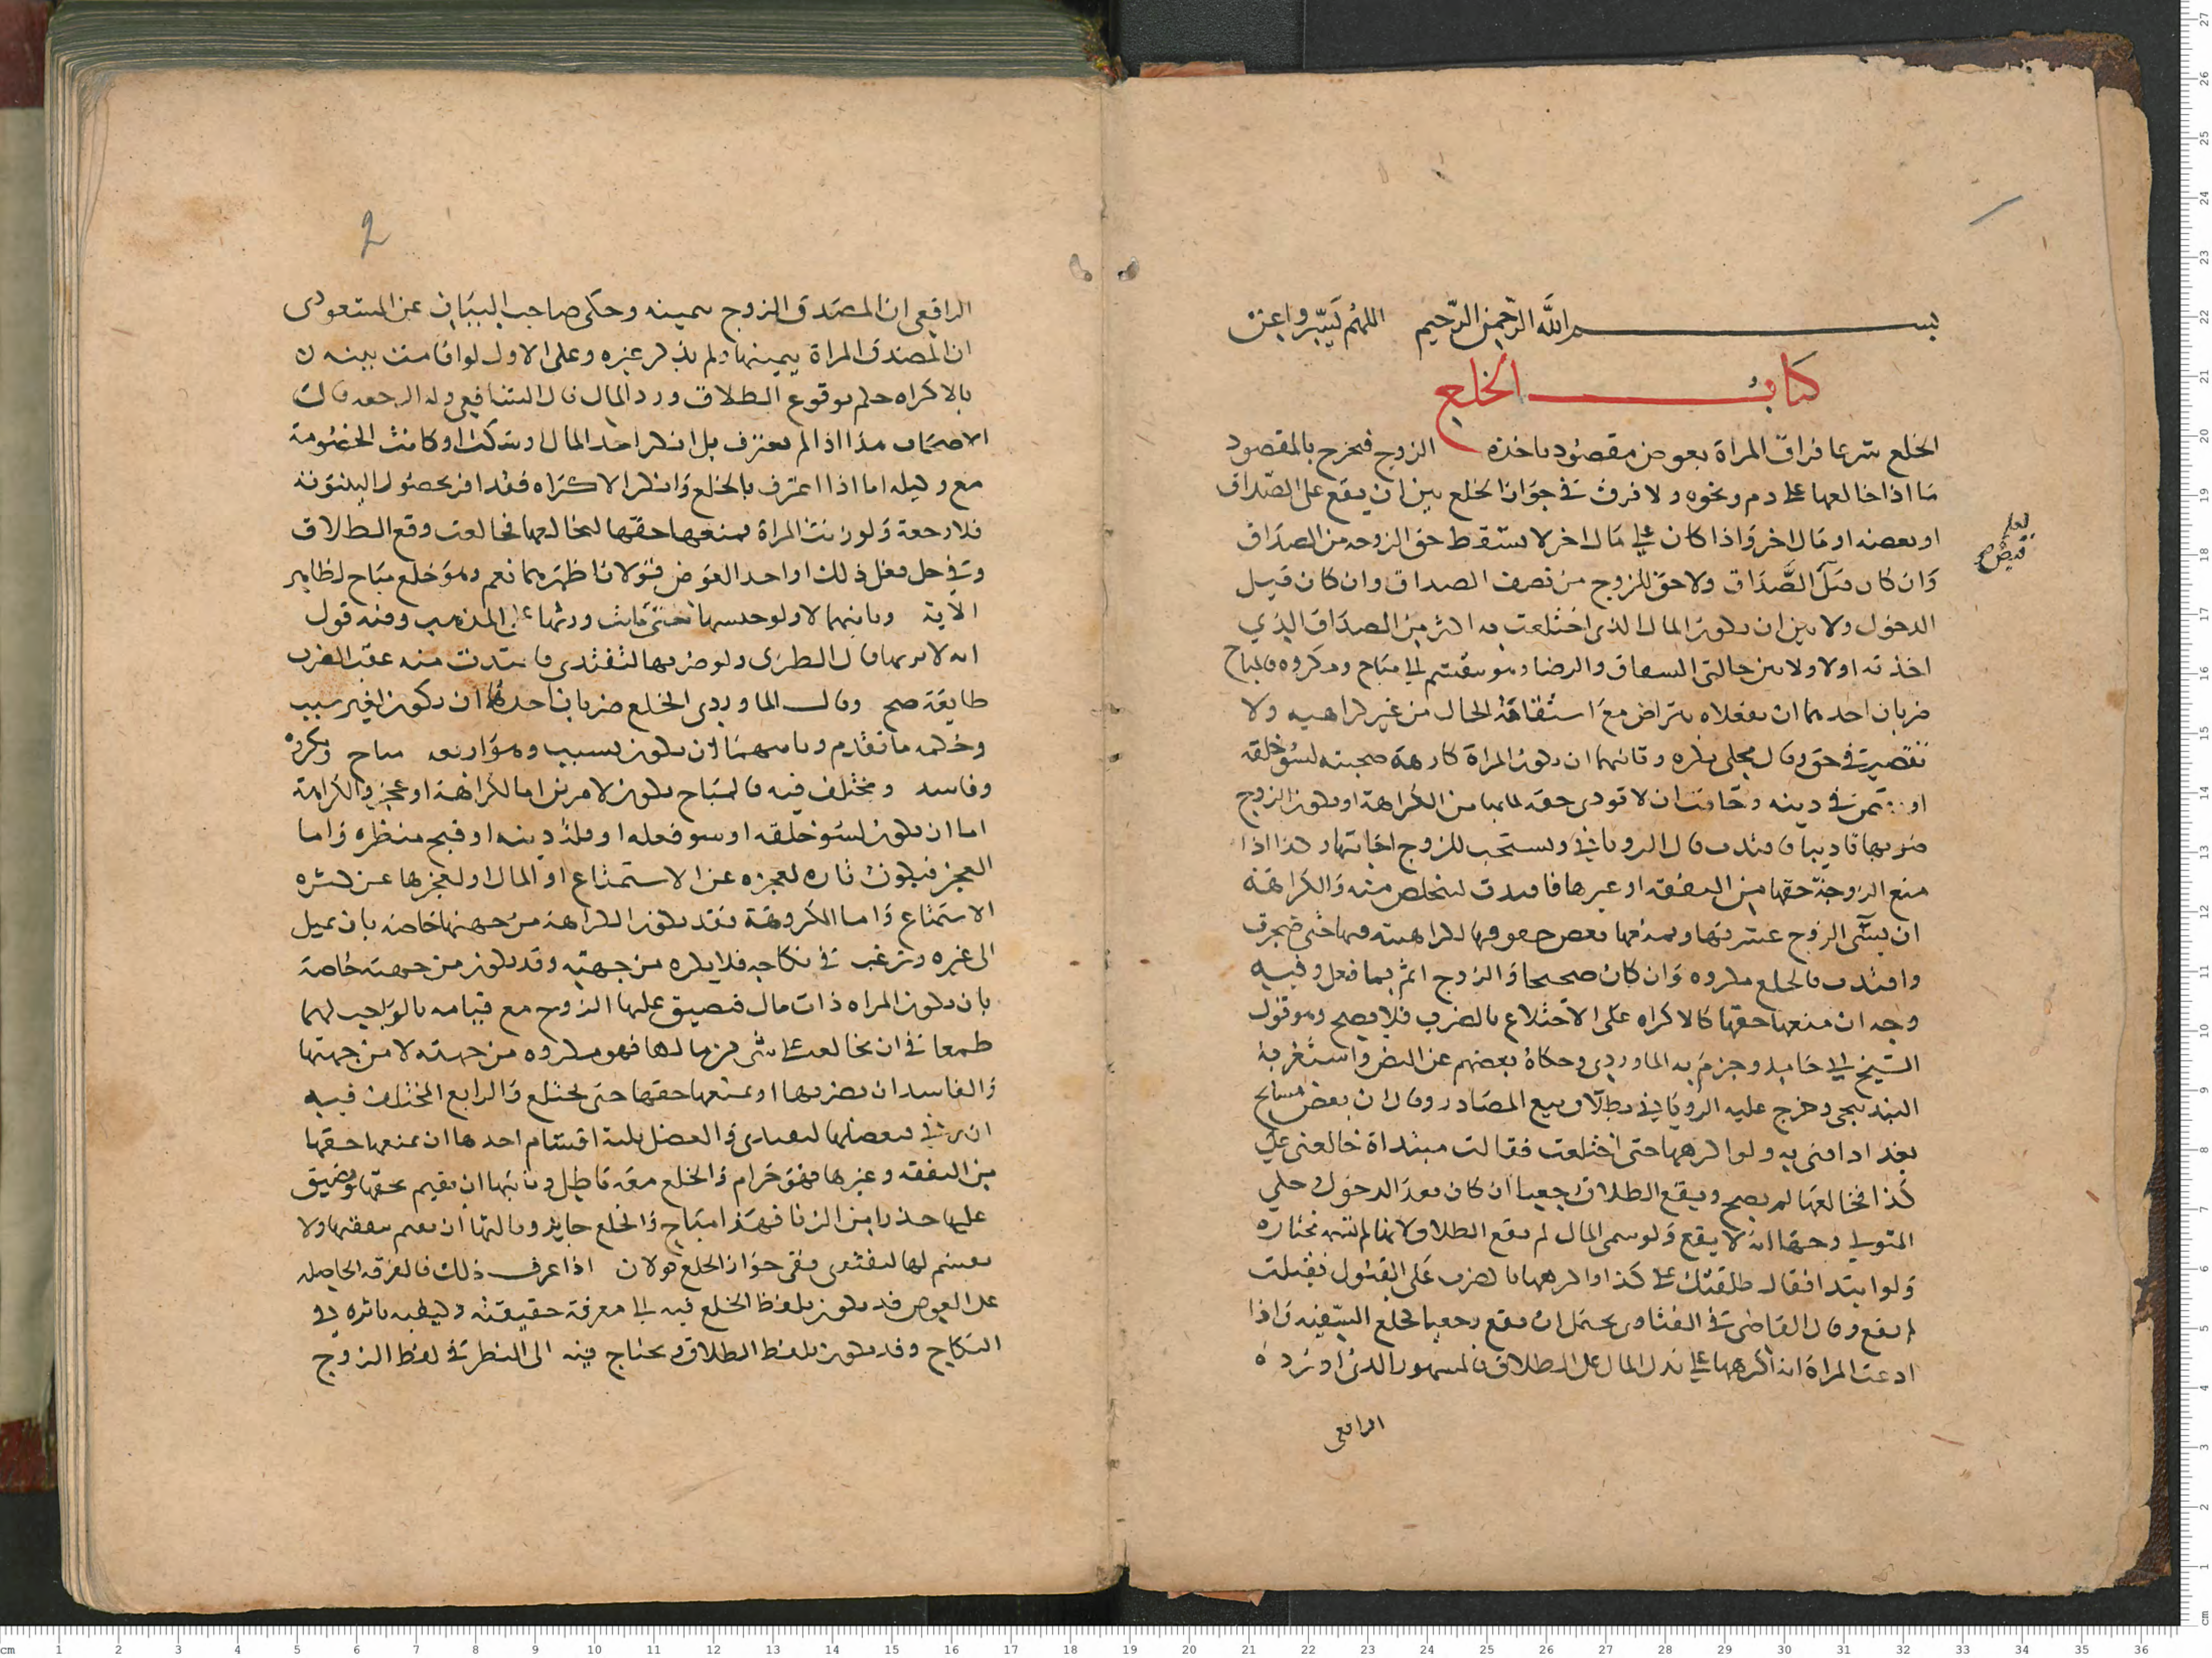 بسم الله الرحمن الرحيم اللهم يسر واعن
كتاب الخلع
الخلع شرعا فراق المراة بعوض مقصود ياخذه الزوج فيخرج بالمقصود
ما اذا خالعها على دم ونحوه ولا فرق في جواز الخلع بين ان يقع على الصداق
او بعضه او مال اخر واذا كان على مال اخر لا يسقط حق الزوجه من الصداق
وان كان قبل الصداق ولا حق للزوج من نصف الصداق وان كان قبل
لعله
قبض
الدخول ولا بين ان يكون المال الذي اختلعت به اكثر من الصداق الذي
اخذته اولا ولا بين حالتي الشقاق والرضا وهو ينقسم الى مباح ومكروه فالمباح
ضربان احدهما ان يفعلاه بتراض مع استقامة الحال من غير كراهيه ولا
تقصير في حق وقال مجلي يكره وثانيهما ان يكون المراة كارهة صحبته لسو خلقه
او في دينه وخافت ان لا تودي حقه لما بها من الكراهة او يكون الزوج
ضربها تاديبا فافتدت قال الروياني ويستحب للزوج اجابتها وكذا اذا
منع الزوجة حقها من النفقه او غيرها فافتدت لتخلص منه والكراهة
ان يسي الزوج عشرتها ويمنعها بعض حقوقها لكراهيته فيها حتى ضجرت
وافتدت فالخلع مكروه وان كان صحيحا والزوج اثم بما فعل وفيه
وجه ان منعها حقها كالاكراه على الاختلاع بالضرب فلا يصح وهو قول
الشيخ ابي حامد وجزم به الماوردي وحكاه بعضهم عن النص واستغربه
البندنيجي وخرج عليه الروياني بطلان بيع المصادر وقال ان بعض مشايخ
بغداد افتى به ولو اكرهها حتى اختلعت فقالت مبتداة خالعني على
كذا فخالعها لم يصح ويقع الطلاق رجعيا ان كان بعد الدخول وحكى
المتولي وجها انه لا يقع ولو سمى المال لم يقع الطلاق لانها لم تلتزمه مختارة
ولو ابتدا فقال طلقتك على كذا واكرهها بالضرب على القبول فقبلت
لم يقع وقال القاضي في الفتاوى يحتمل ان يقع رجعيا كخلع السفيه واذا
ادعت المراة انه اكرهها على بذل المال على الطلاق فالمشهور الذي اورده
الرافعي
2
الرافعي ان المصدق الزوج بيمينه وحكى صاحب البيان عن المسعودي
ان المصدق المراة بيمينها ولم يذكر غيره وعلى الاول لو اقامت بينه
بالاكراه حكم بوقوع الطلاق ورد المال قال الشافعي وله الرجعه قال
الاصحاب هذا اذا لم يعترف بل انكر اخذ المال او سكت او كانت الخصومة
مع وكيله اما اذا اعترف بالخلع وانكر الاكراه فقد اقر بحصول البينونة
فلا رجعة ولو زنت المراة فمنعها حقها لتخالعها فخالعت وقع الطلاق
وفي حل فعل ذلك او اخذ العوض قولان اظهرهما نعم وهو خلع مباح لظاهر
الاية وثانيهما لا ولو حبسها حتى ماتت ورثها على المذهب وفيه قول
انه لا يرثها قال الطبري ولو ضربها لتفتدي فافتدت منه عقب الضرب
طايعة صح وقال الماوردي الخلع ضربان احدهما ان يكون لغير سبب
وحكمه ما تقدم وثانيهما ان يكون بسبب وهو اربعه مباح ومكروه
وفاسد ومختلف فيه فالمباح يكون لامرين اما لكراهة او عجز والكراهة
اما ان يكون لسو خلقه او سو فعله او قلة دينه او قبح منظره واما
العجز فيكون تاره لعجزه عن الاستمتاع او المال او لعجزها عن كثره
الاستمتاع واما المكروهة فقد يكون الكراهة من جهتها خاصه بان يميل
الى غيره وترغب في نكاحه فلا يكره من جهته وقد يكون من جهته خاصة
بان يكون المراه ذات مال فيضيق عليها الزوج مع قيامه بالواجب لها
طمعا في ان تخالعه على شي من مالها فهو مكروه من جهته لا من جهتها
والفاسد ان يضربها او يمنعها حقها حتى يختلع والرابع المختلف فيه
ان يعضلها لتفتدي والعضل ثلثة اقسام احدها ان يمنعها حقها
من النفقه وغيرها فهو حرام والخلع معه باطل وثانيها ان يقيم بحقها ويضيق
عليها حذرا من الزنا فهذا مباح والخلع جايز وثالثها ان يقيم بنفقتها ولا
يقسم لها لتفتدي ففي جواز الخلع قولان اذا عرف ذلك فالفرقه الحاصله
على العوض قد يكون بلفظ الخلع فيه الى معرفة حقيقته وكيفيه تاثره في
النكاح وقد يكون بلفظ الطلاق ويحتاج فيه الى النظر في لفظ الزوج